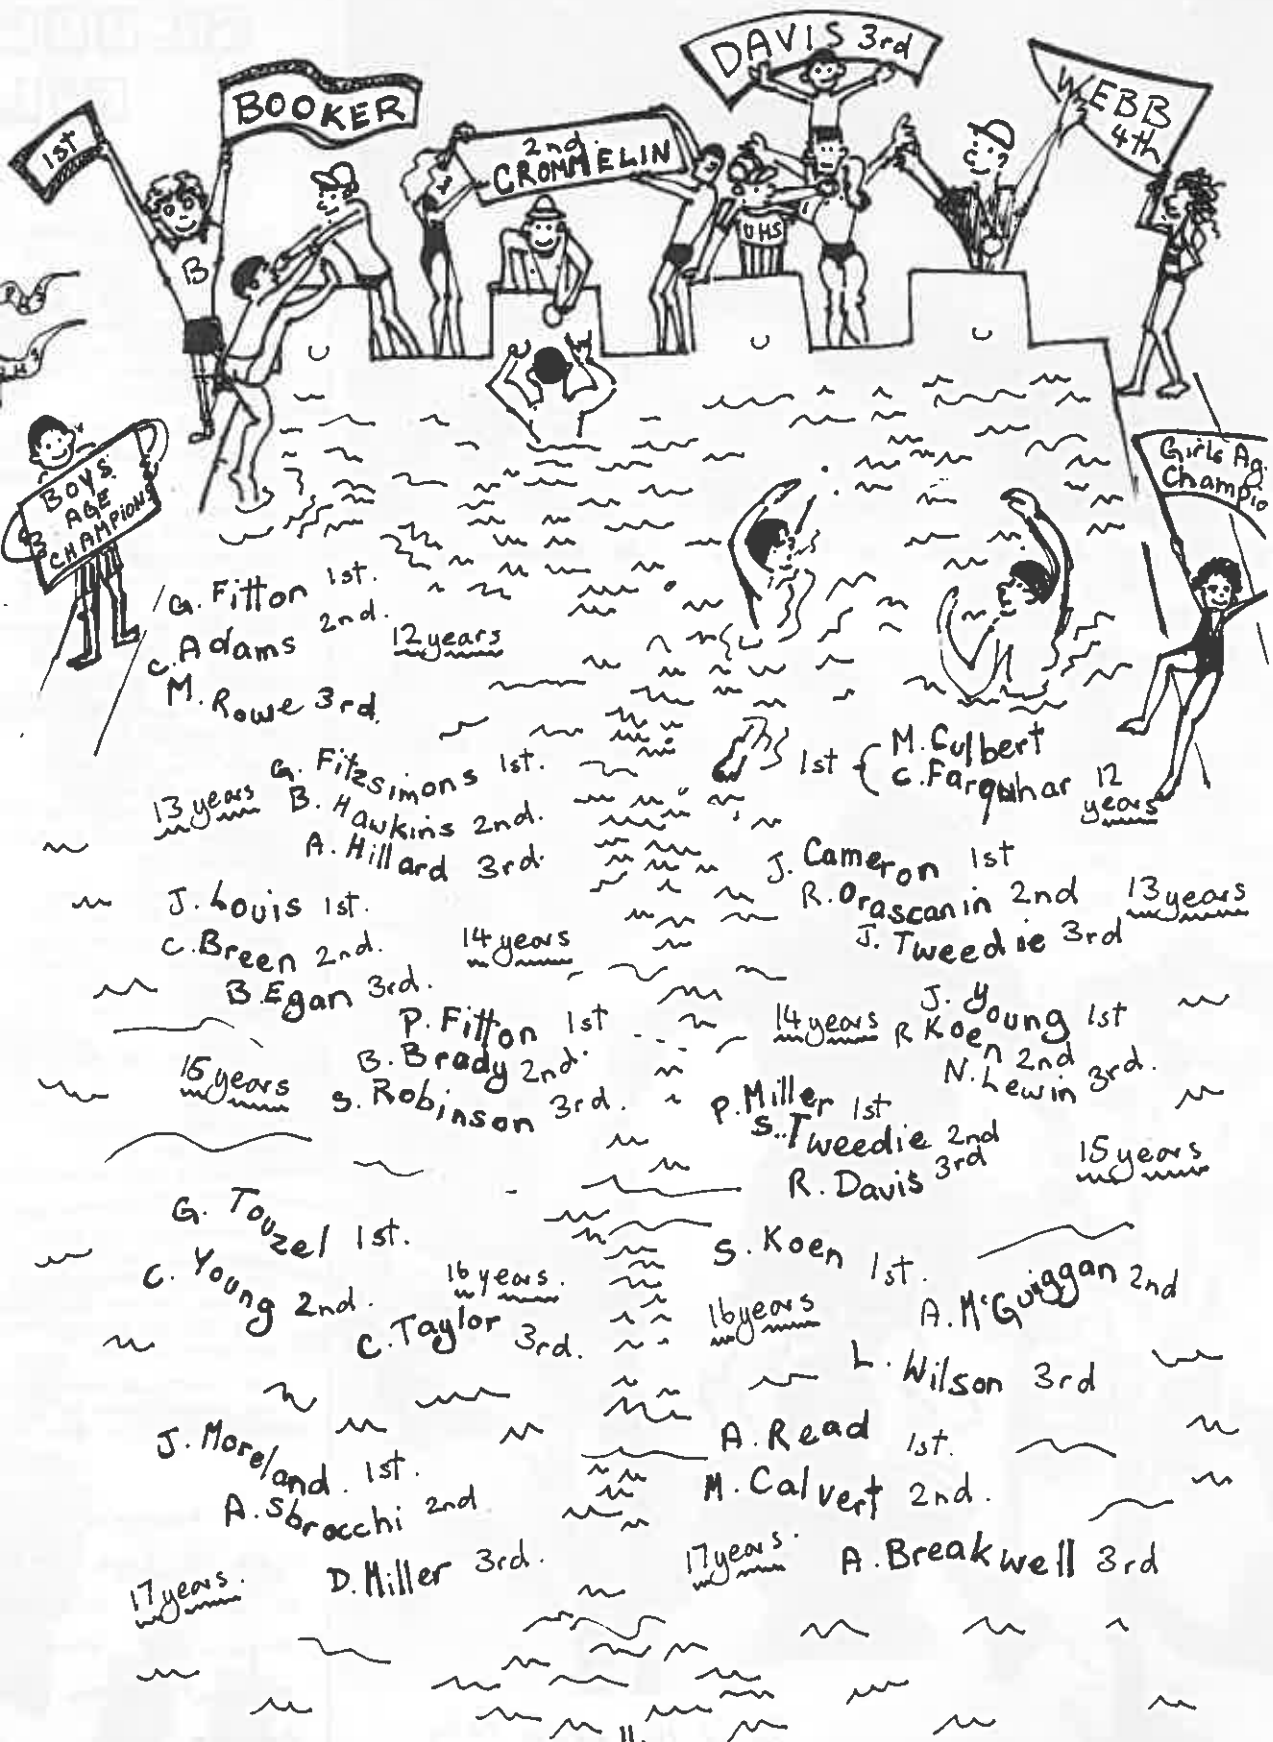 1ST
BOOKER
2nd.
CROMMELIN
DAVIS 3rd
WEBB
4th
B
UHS
BOYS
AGE
CHAMPIONS
Girls Ag
Champio
G. Fitton 1st.
C. Adams 2nd.
12 years
M. Rowe 3rd.
G. Fitzsimons 1st.
13 years
B. Hawkins 2nd.
A. Hillard 3rd.
J. Louis 1st.
C. Breen 2nd.
14 years
B. Egan 3rd.
P. Fitton 1st
B. Brady 2nd.
15 years
S. Robinson 3rd.
G. Touzel 1st.
C. Young 2nd.
16 years.
C. Taylor 3rd.
J. Moreland. 1st.
A. Sbrocchi 2nd
D. Miller 3rd.
17 years.
1st { M. Culbert
C. Farquhar 12
years
J. Cameron 1st
R. Orascanin 2nd 13 years
J. Tweedie 3rd
J. Young 1st
14 years R Koen 2nd
N. Lewin 3rd.
P. Miller 1st
S. Tweedie 2nd
R. Davis 3rd
15 years
S. Koen 1st.
16 years
A. McGuiggan 2nd
L. Wilson 3rd
A. Read 1st.
M. Calvert 2nd.
17 years. A. Breakwell 3rd
11.